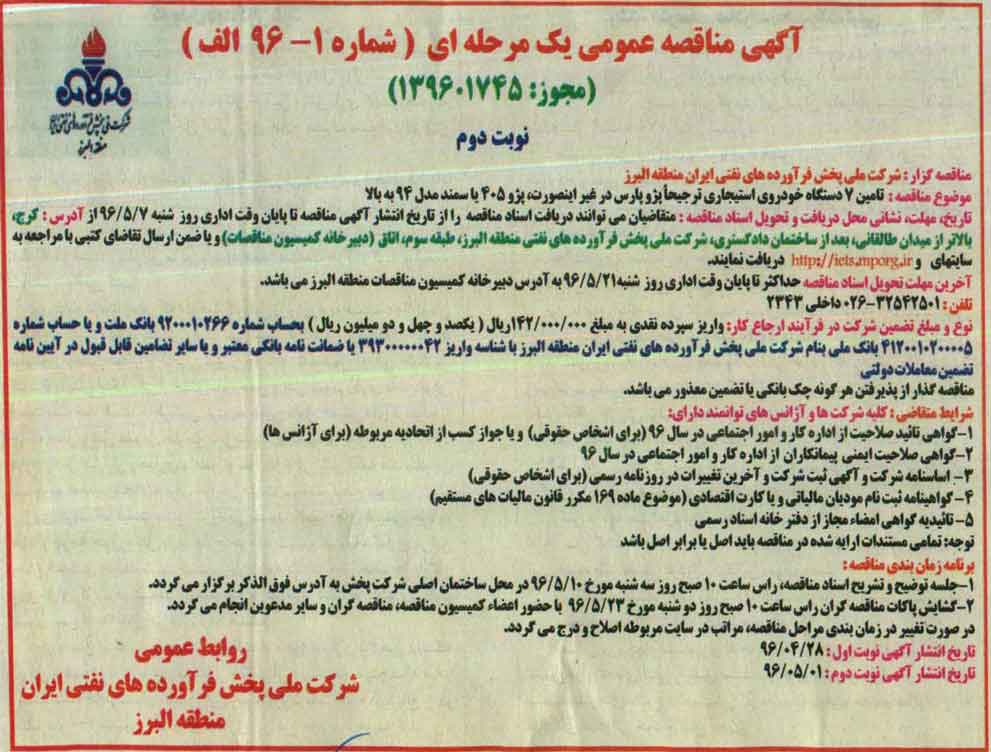 آگهی مناقصه عمومی یک مرحله ای ( شماره ۱- ۹۶ الف )
(مجوز: ۱۳۹۶۰۱۷۴۵)
نوبت دوم
شرکت ملی پخش فرآورده های نفتی ایران
منطقه البرز
مناقصه گزار : شرکت ملی پخش فرآورده های نفتی ایران منطقه البرز
موضوع مناقصه : تامین ۷ دستگاه خودروی استیجاری ترجیحاً پژو پارس در غیر اینصورت، پژو ۴۰۵ یا سمند مدل ۹۴ به بالا
تاریخ، مهلت، نشانی محل دریافت و تحویل اسناد مناقصه : متقاضیان می توانند دریافت اسناد مناقصه را از تاریخ انتشار آگهی مناقصه تا پایان وقت اداری روز شنبه ۹۶/۵/۷ از آدرس : کرج،
بالاتر از میدان طالقانی، بعد از ساختمان دادگستری، شرکت ملی پخش فرآورده های نفتی منطقه البرز، طبقه سوم، اتاق (دبیرخانه کمیسیون مناقصات) و یا ضمن ارسال تقاضای کتبی با مراجعه به
سایتهای و http://iets.mporg.ir دریافت نمایند.
آخرین مهلت تحویل اسناد مناقصه حداکثر تا پایان وقت اداری روز شنبه ۹۶/۵/۲۱ به آدرس دبیرخانه کمیسیون مناقصات منطقه البرز می باشد.
تلفن : ۳۲۵۴۲۵۰۱-۰۲۶ داخلی ۲۳۴۳
نوع و مبلغ تضمین شرکت در فرآیند ارجاع کار: واریز سپرده نقدی به مبلغ ۱۴۲/۰۰۰/۰۰۰ریال ( یکصد و چهل و دو میلیون ریال ) بحساب شماره ۹۲۰۰۰۱۰۲۶۶ بانک ملت و یا حساب شماره
۴۱۲۰۰۱۰۲۰۰۰۰۵ بانک ملی بنام شرکت ملی پخش فرآورده های نفتی ایران منطقه البرز با شناسه واریز ۳۹۳۰۰۰۰۰۰۴۲ یا ضمانت نامه بانکی معتبر و یا سایر تضامین قابل قبول در آیین نامه
تضمین معاملات دولتی
مناقصه گذار از پذیرفتن هر گونه چک بانکی یا تضمین معذور می باشد.
شرایط متقاضی : کلیه شرکت ها و آژانس های توانمند دارای:
۱-گواهی تائید صلاحیت از اداره کار و امور اجتماعی در سال ۹۶ (برای اشخاص حقوقی) و یا جواز کسب از اتحادیه مربوطه (برای آژانس ها)
۲-گواهی صلاحیت ایمنی پیمانکاران از اداره کار و امور اجتماعی در سال ۹۶
۳- اساسنامه شرکت و آگهی ثبت شرکت و آخرین تغییرات در روزنامه رسمی (برای اشخاص حقوقی)
۴-گواهینامه ثبت نام مودیان مالیاتی و یا کارت اقتصادی (موضوع ماده ۱۶۹ مکرر قانون مالیات های مستقیم)
۵- تائیدیه گواهی امضاء مجاز از دفتر خانه اسناد رسمی
توجه: تمامی مستندات ارایه شده در مناقصه باید اصل یا برابر اصل باشد
برنامه زمان بندی مناقصه :
۱-جلسه توضیح و تشریح اسناد مناقصه، راس ساعت ۱۰ صبح روز سه شنبه مورخ ۹۶/۵/۱۰ در محل ساختمان اصلی شرکت پخش به آدرس فوق الذکر برگزار می گردد.
۲-گشایش پاکات مناقصه گران راس ساعت ۱۰ صبح روز دو شنبه مورخ ۹۶/۵/۲۳ با حضور اعضاء کمیسیون مناقصه، مناقصه گران و سایر مدعوین انجام می گردد.
در صورت تغییر در زمان بندی مراحل مناقصه، مراتب در سایت مربوطه اصلاح و درج می گردد.
تاریخ انتشار آگهی نوبت اول : ۹۶/۰۴/۲۸
تاریخ انتشار آگهی نوبت دوم : ۹۶/۰۵/۰۱
روابط عمومی
شرکت ملی پخش فرآورده های نفتی ایران
منطقه البرز